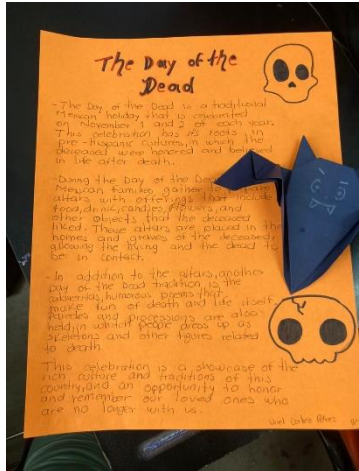 The Day of the
Dead
- The Day of the Dead is a traditional
Mexican holiday that is celebrated
on November 1 and 2 of each year.
This celebration has its roots in
pre-Hispanic cultures, in which the
deceased were honored and believed
in life after death.
- During the Day of the
Mexican families gather to
altars with offerings that include
food, drink, candles, and
other objects that the deceased
liked. These altars are placed in the
homes and graves of the deceased,
allowing the living and the dead to
be in contact.
- In addition to the altars, another
Day of the Dead tradition, is the
calaveritas, humorous poems that
make fun of death and life itself.
Parades and processions are also
held, in which people dress up as
skeletons and other figures related
to death.
This celebration is a showcase of the
rich culture and traditions of this
country, and an opportunity to honor
and remember our loved ones who
are no longer with us.